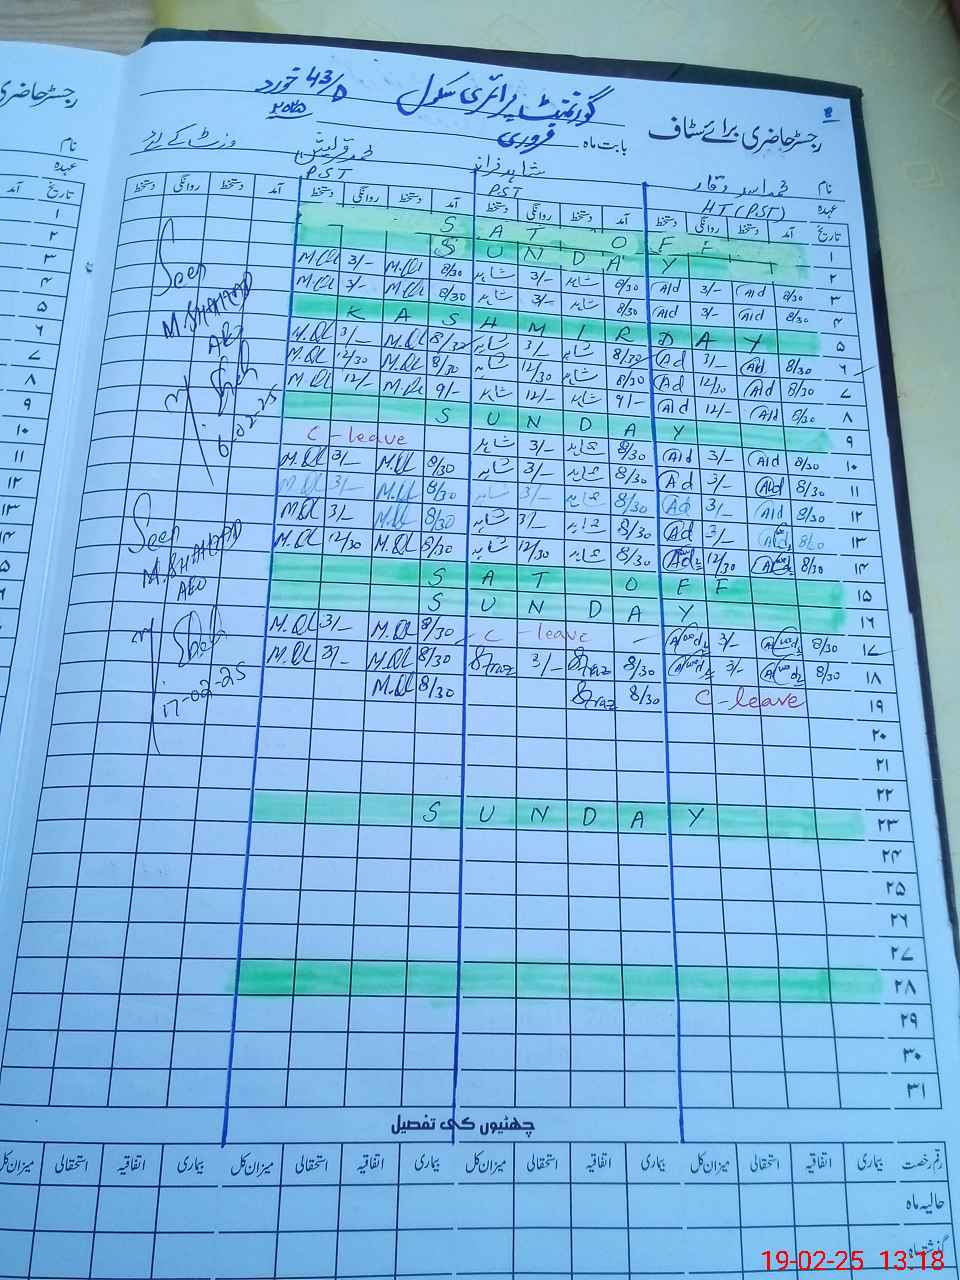 رجسٹر حاضری برائے سٹاف
گورنمنٹ پرائمری سکول 43/D خورد
بابت ماہ فروری ۲۰۲۵
نام محمد اسد وقار شاہد فراز محمد قریش
عہدہ HT (PST) PST PST
تاریخ آمد دستخط روانگی دستخط آمد دستخط روانگی دستخط آمد دستخط روانگی دستخط آمد دستخط روانگی دستخط
۱ SAT OFF
۲ SUNDAY
۳ 8/30 Ald 3/- Ald 8/30 شاہد 3/- شاہد 8/30 M.Ql 3/- M.Ql
۴ 8/30 Ald 3/- Ald 8/30 شاہد 3/- شاہد 8/30 M.Ql 3/- M.Ql
۵ KASHMIR DAY
۶ 8/30 Ad 3/- Ad 8/30 شاہد 3/- شاہد 8/30 M.Ql 3/- M.Ql
۷ 8/30 Ad 12/30 Ad 8/30 شاہد 12/30 شاہد 8/30 M.Ql 12/30 M.Ql
۸ 8/30 Ald 12/- Ald 9/- شاہد 12/- شاہد 9/- M.Ql 12/- M.Ql
۹ SUNDAY
۱۰ 8/30 Ald 3/- Ald 8/30 شاہد 3/- شاہد C-leave
۱۱ 8/30 Ad 3/- Ad 8/30 شاہد 3/- شاہد 8/30 M.Ql 3/- M.Ql
۱۲ 8/30 Ald 3/- Ad 8/30 شاہد 3/- شاہد 8/30 M.Ql 3/- M.Ql
۱۳ 3/- Ad 8/30 شاہد 3/- شاہد 8/30 M.Ql 3/- M.Ql
۱۴ 8/30 12/30 8/30 شاہد 12/30 شاہد 8/30 M.Ql 12/30 M.Ql
۱۵ SAT OFF
۱۶ SUNDAY
۱۷ 8/30 3/- C-leave 8/30 M.Ql 3/- M.Ql
۱۸ 8/30 3/- 8/30 Sfraz 3/- Sfraz 8/30 M.Ql 3/- M.Ql
۱۹ C-leave 8/30 Sfraz 8/30 M.Ql
۲۰
۲۱
۲۲
۲۳ SUNDAY
۲۴
۲۵
۲۶
۲۷
۲۸
۲۹
۳۰
۳۱
Seen
M.SHAHZAD
AEO
6.02-25
Seen
M.SHAHZAD
AEO
17-02-25
چھٹیوں کی تفصیل
رقم رخصت بیماری اتفاقیہ استحقاقی میزان کل بیماری اتفاقیہ استحقاقی میزان کل بیماری اتفاقیہ استحقاقی میزان کل بیماری اتفاقیہ استحقاقی میزان کل
حالیہ ماہ
گذشتہ ماہ
رجسٹر حاضری
نام
عہدہ
تاریخ آمد
۱
۲
۳
۴
۵
۶
۷
۸
۹
۱۰
۱۱
۱۲
۱۳
۱۴
19-02-25 13:18